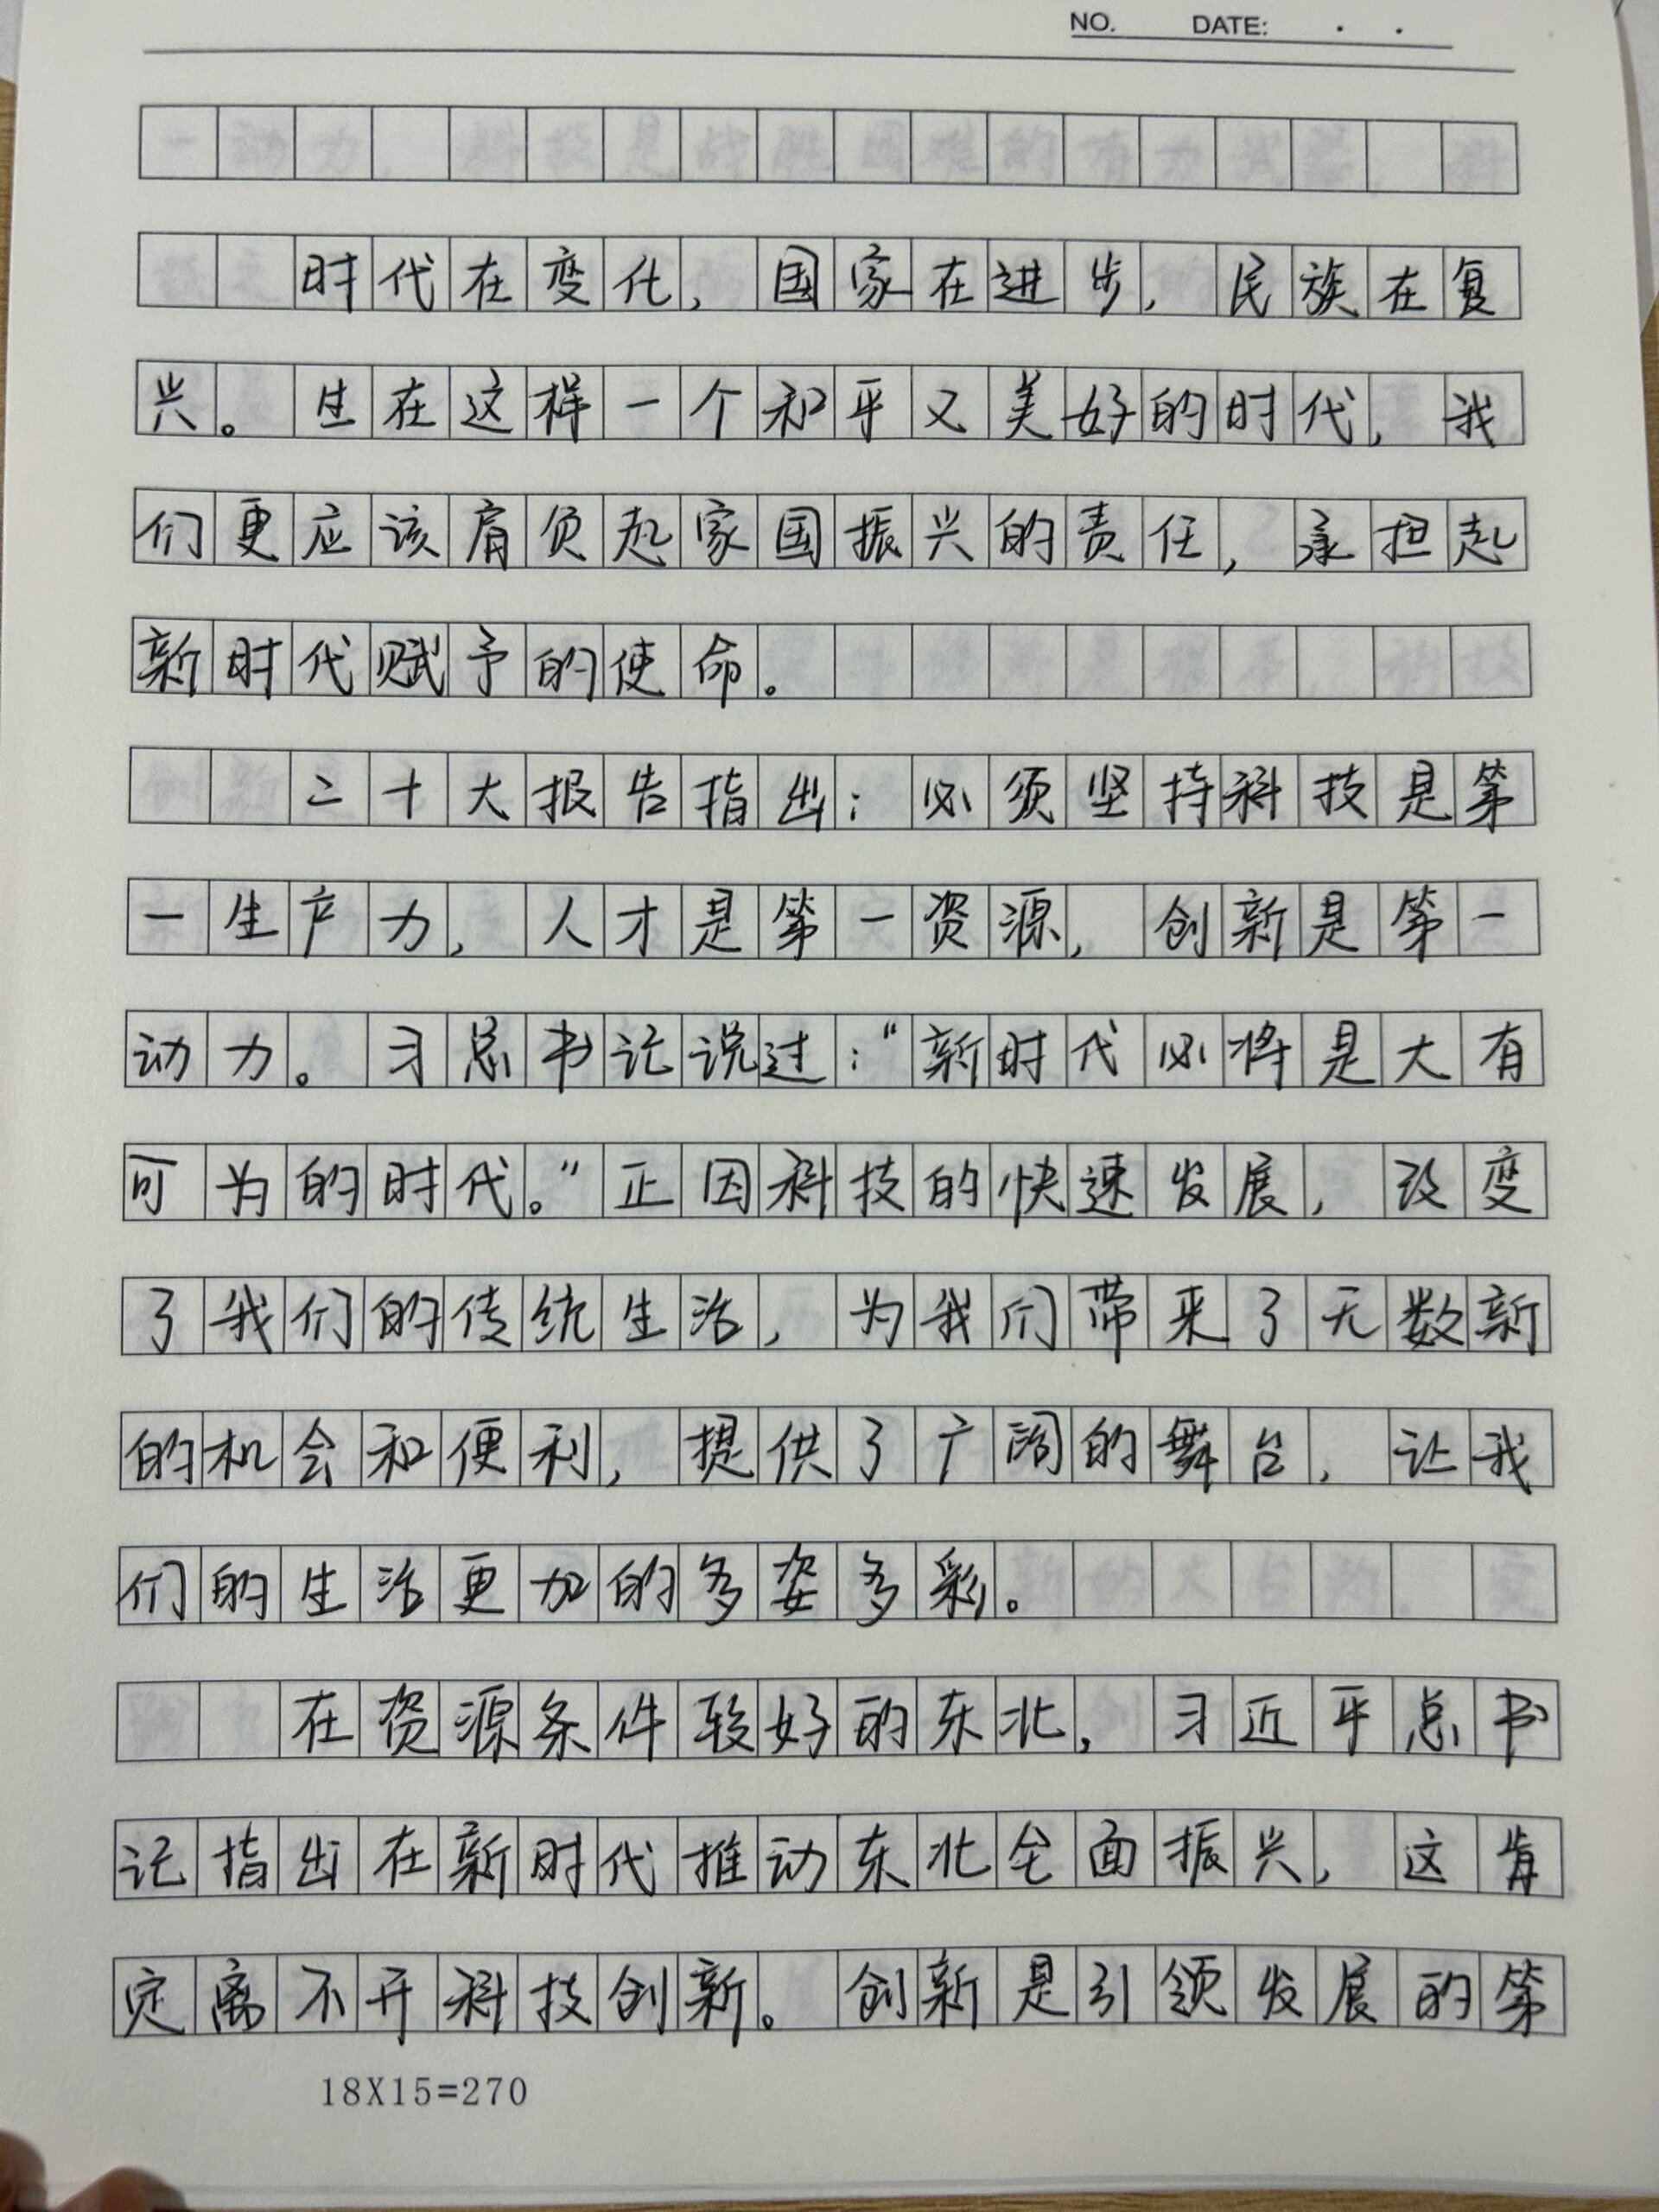 NO. DATE: . .
时代在变化，国家在进步，民族在复
兴。生在这样一个和平又美好的时代，我
们更应该肩负起家国振兴的责任，承担起
新时代赋予的使命。
二十大报告指出：必须坚持科技是第
一生产力，人才是第一资源，创新是第一
动力。习总书记说过：“新时代必将是大有
可为的时代。”正因科技的快速发展，改变
了我们的传统生活，为我们带来了无数新
的机会和便利，提供了广阔的舞台，让我
们的生活更加的多姿多彩。
在资源条件较好的东北，习近平总书
记指出在新时代推动东北全面振兴，这肯
定离不开科技创新。创新是引领发展的第
18X15=270